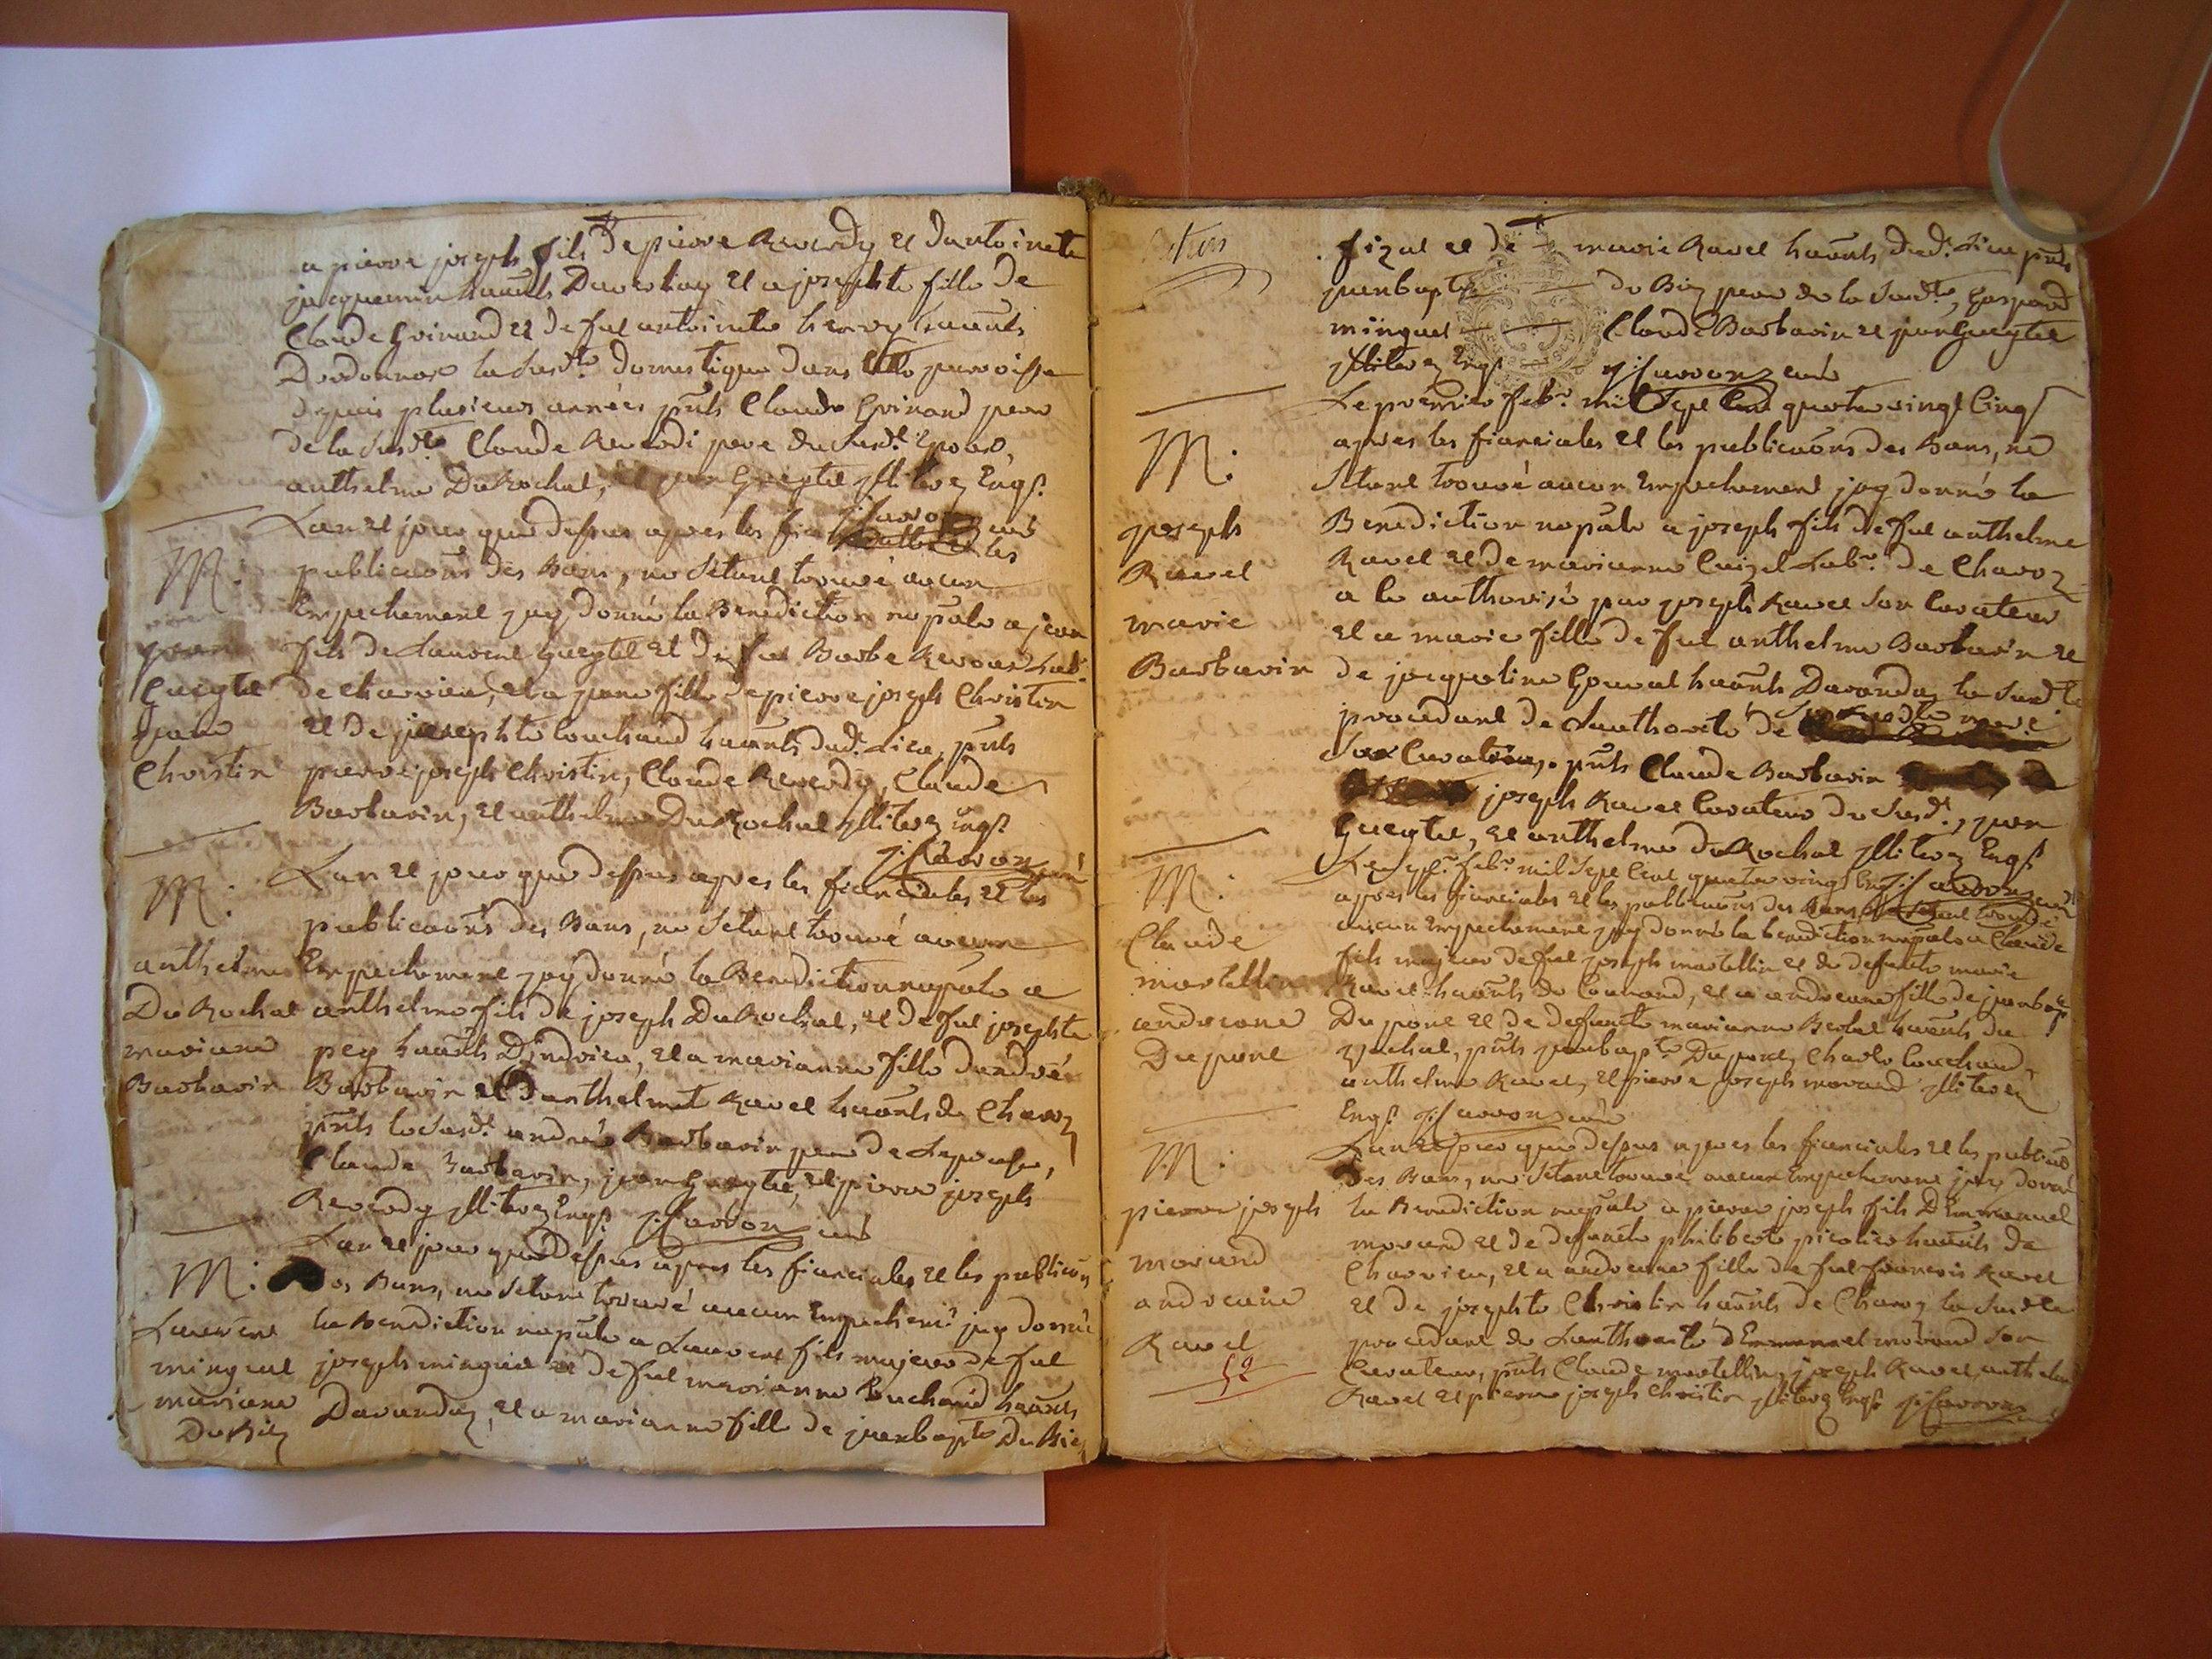 a pierre joseph fils de pierre Reverdy et dantoinete
jacquemin haants et a josephte fille de
Claude Guinand et de fut antoinete hervy haants
la Susdte domestique dans paroisse
depuis plusieurs années pnts Claude Guinand pere
de la Susdte Claude Reverdi pere du Susdt Epoux,
anthelme DuRochat, jean Gueytet illiterez Enqs
Lan et jour que dessus apres les
publicaons des Bans, ne Setant trouvé aucun
Empechement jay donné la Benediction nuptale a jean
fils de Laurent Gueytet et de fut Barbe
de Charvieu, et a jeane fille de pierre joseph Christin
et de josephte Couchaud haants dudt Lieu, pnts
pierre joseph Christin, Claude Reverdy, Claude
Barbarin, et anthelme DuRochat illiterez Enqs
M:
jean
Gueytet
jeane
Christin
Lan et jour que dessus apres les fianciales et les
publicaons des Bans, ne Setant trouvé aucune
Empechement jay donné la Benediction nuptale a
anthelme fils de joseph DuRochat, et de fut josephte
pey haants Dindrieu, et a marianne fille dandré
Barbarin et Danthelmet Ravet haants de Charoz
pnts le Susdt andré Barbarin pere de Lepouse,
Claude Barbarin, jean Gueytet, et pierre joseph
Reverdy illiterez Enqs
M:
anthelme
DuRochat
mariane
Barbarin
Lan et jour que dessus apres les fianciales et les publicaons
des Bans, ne Setant trouvé aucun Empechent jay donné
la Benediction nuptale a Laurent fils majeur de fut
joseph minguet et de fut marianne Couchaud haants
Davanday, et a marianne fille de jeanbapte DuBiez
M:
Laurent
minguet
mariane
DuBiez
fizat et de marie Ravet haants dudt Lieu pnts
jeanbapte du Biez pere de la Susdte, Gaspard
minguet Claude Barbarin et jean Gueytet
illiterez Enqs j: favron curé
Le premier febr mil Sept Cent quatre vingt Cinq
apres les fianciales et les publicaons des Bans, ne
Setant trouvé aucun Empechement jay donné la
Benediction nuptale a joseph fils de fut anthelme
Ravet et de marianne Labr de Charoz
a le authorisé par joseph Ravet Son Curateur
et a marie fille de fut anthelme Barbarin et
de jacqueline haants Davanday la Susdte
procedant de Lauthorité de Susdte mere
Sa Curatrice, pnts Claude Barbarin
joseph Ravet Curateur du Susdt, jean
Gueytet, et anthelme duRochat illiterez Enqs
M:
joseph
Ravet
marie
Barbarin
Le febr mil Sept Cent quatre vingt Cinq j: favron curé
apres les fianciales et les publicaons des Bans, ne Setant trouvé
aucun Empechement jay donné la benediction nuptale a Claude
fils majeur de fut joseph martellin et de defunte marie
Ravet haants de et a andreane fille de jeanbapt
Dupont et de defunte marianne haants du
pnts jeanbapte Dupont, Charle Couchaud,
anthelme Ravet, et pierre joseph morand illiterez
Enqs j: favron curé
M:
Claude
martellin
andreane
Dupont
Lan et jour que dessus apres les fianciales et les publicaons
des Bans, ne Setant trouvé aucun Empechement jay donné
la Benediction nuptale a pierre joseph fils DEmmanuel
morand et de defuncte philiberte haants de
Charvieu, et a andreane fille de fut francois Ravet
et de josephte Christin haants de Charoz la Susdte
procedant de Lauthorité dEmmanuel morand Son
Curateur, pnts Claude martellin, joseph Ravet, anthelme
Ravet et pierre joseph Christin illiterez Enqs j: favron
M:
pierre joseph
morand
andreane
Ravet
52